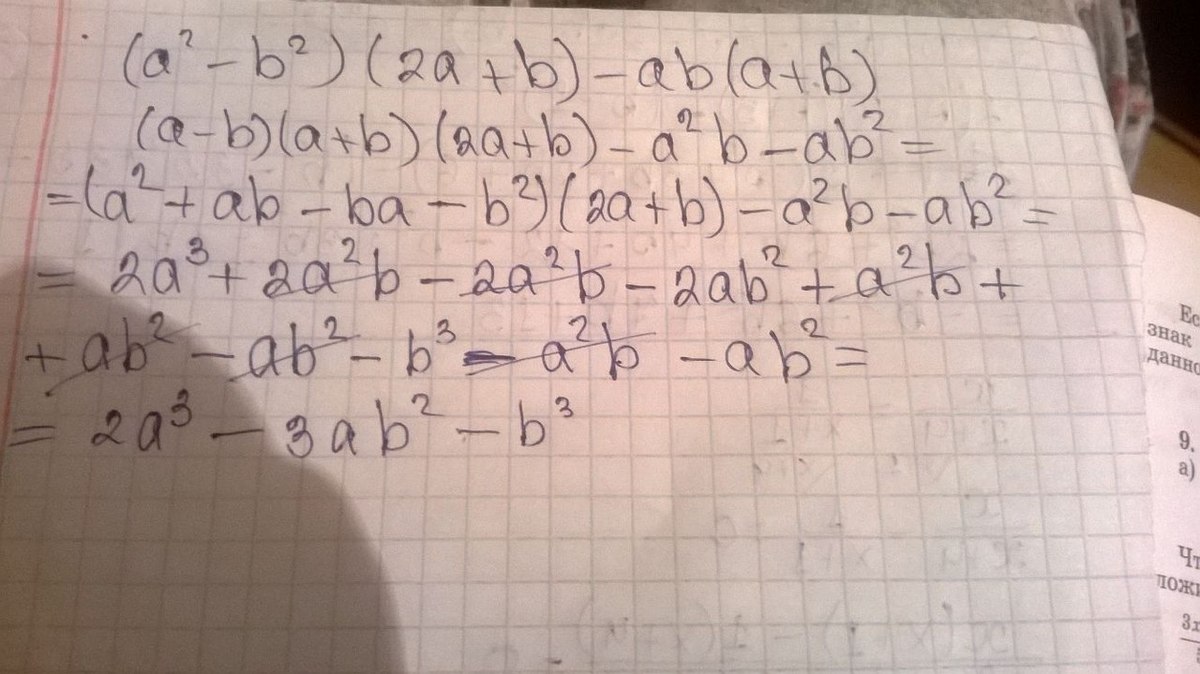 (a² − b²)(2a + b) − ab(a + b)
(a − b)(a + b)(2a + b) − a²b − ab² =
= (a² + ab − ba − b²)(2a + b) − a²b − ab² =
= 2a³ + 2a²b − 2a²b − 2ab² + a²b +
+ ab² − ab² − b³ − a²b − ab² =
= 2a³ − 3ab² − b³
Ес
знак
данно
9.
а)
Чт
ложи
3x